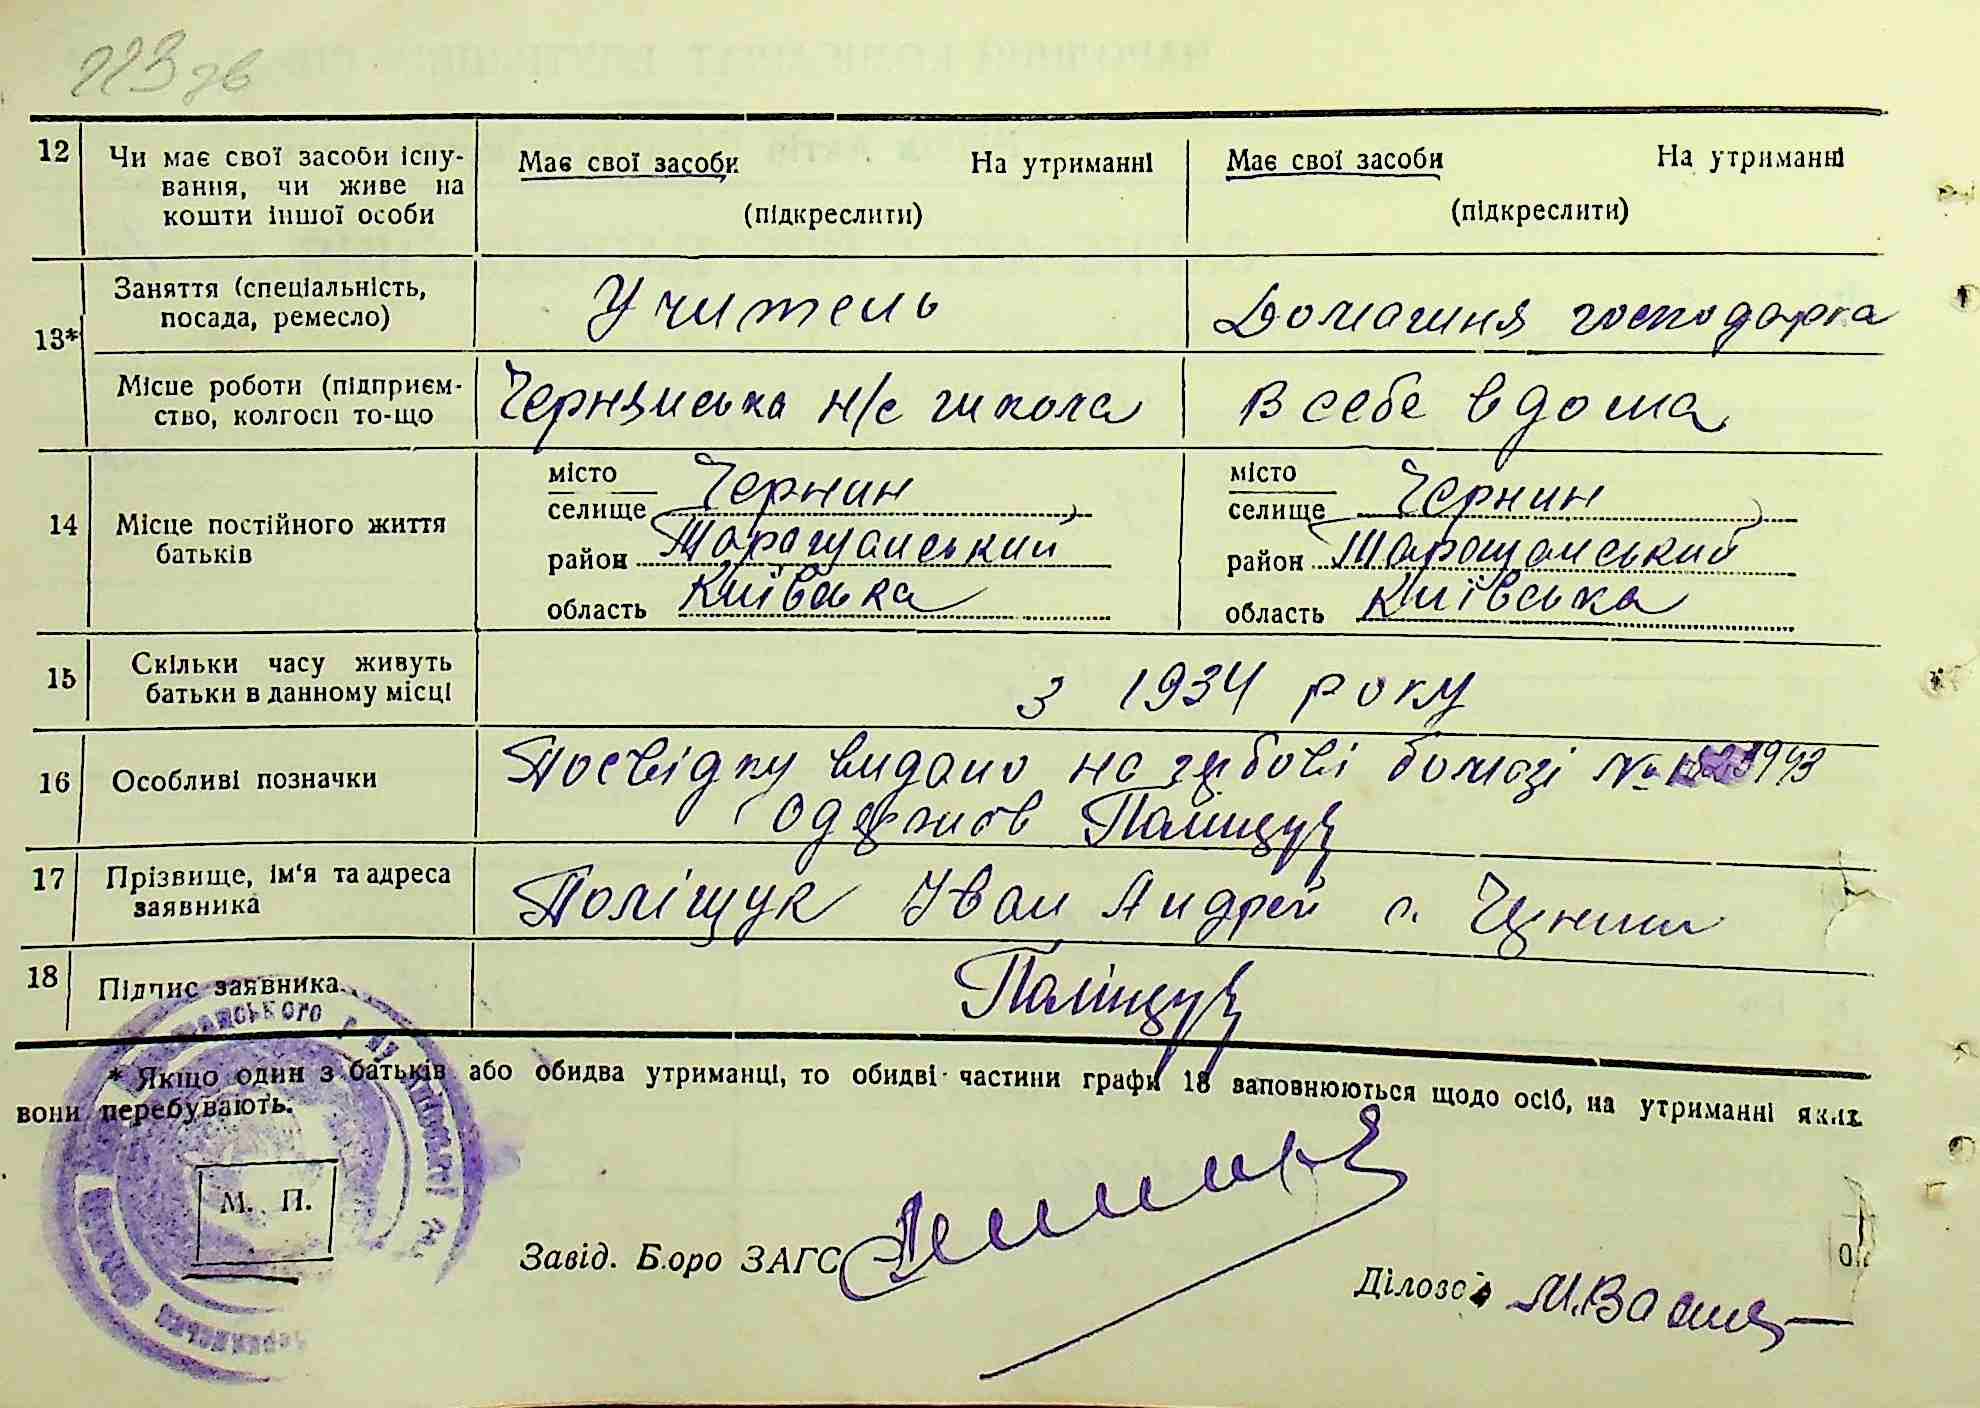 223 зв
12 Чи має свої засоби існу-
вання, чи живе на
кошти іншої особи
Має свої засоби На утриманні
(підкреслити)
Має свої засоби На утриманні
(підкреслити)
13*
Заняття (спеціальність,
посада, ремесло)
Учитель
Домашня господарка
Місце роботи (підприєм-
ство, колгосп то-що
Чернинська н/с школа
В себе вдома
14 Місце постійного життя
батьків
місто
селище Чернин
район Таращанський
область Київська
місто
селище Чернин
район Таращанський
область Київська
15 Скільки часу живуть
батьки в данному місці
з 1934 року
16 Особливі позначки
Посвідку видано на гербові бомазі №
одержав Поліщук
17 Прізвище, ім'я та адреса
заявника
Поліщук Іван Андрей с.
18 Підпис заявника
Поліщук
* Якщо один з батьків або обидва утриманці, то обидві частини графи 13 заповнюються щодо осіб, на утриманні яких
вони перебувають.
М. П.
Завід. Бюро ЗАГС
Діловод